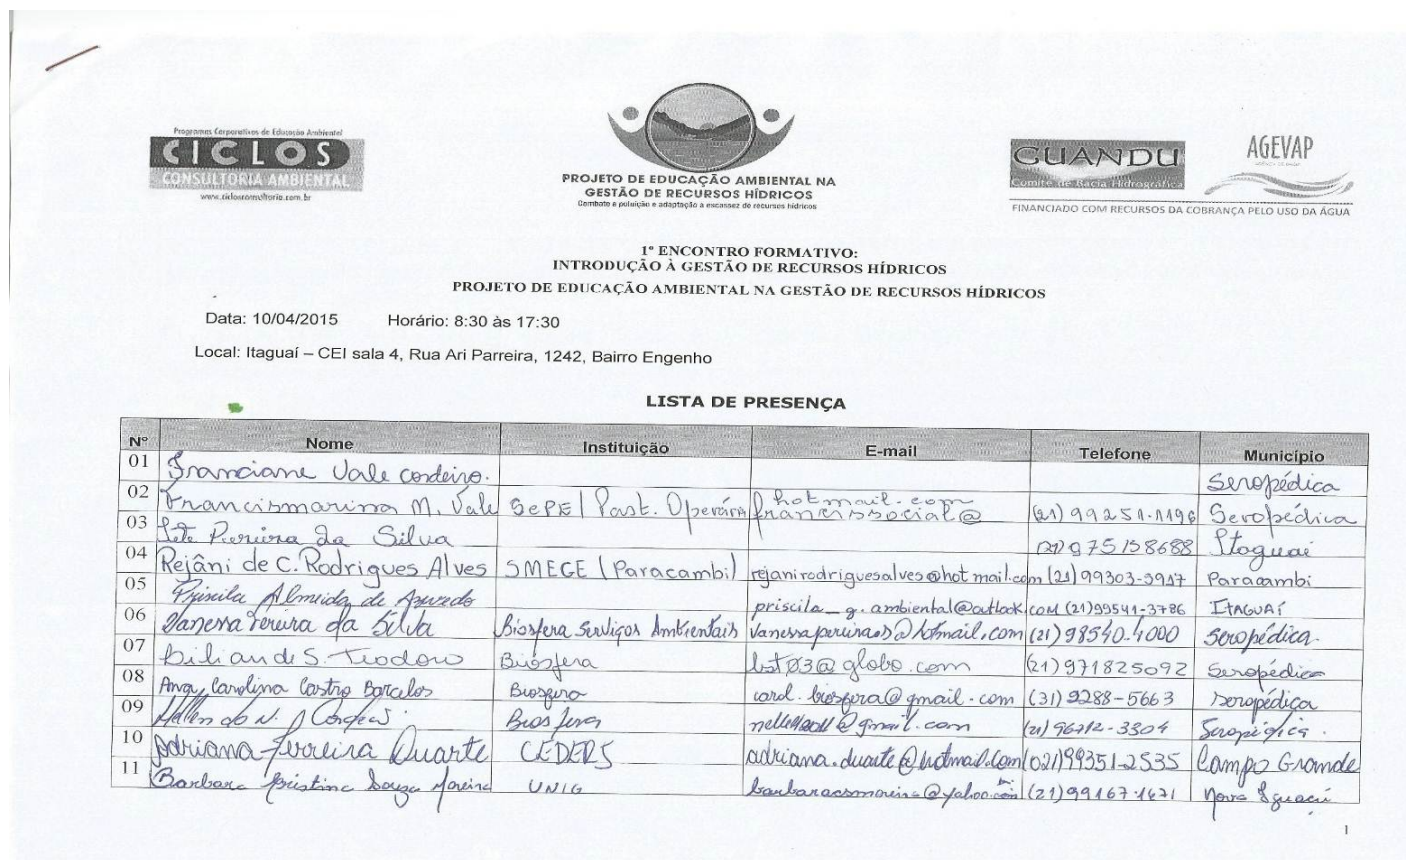 Programas Corporativos de Educação Ambiental
CICLOS
CONSULTORIA AMBIENTAL
www.ciclosconsultoria.com.br
PROJETO DE EDUCAÇÃO AMBIENTAL NA
GESTÃO DE RECURSOS HÍDRICOS
Combate a poluição e adaptação a escassez de recursos hídricos
GUANDU
Comitê de Bacia Hidrográfica
AGEVAP
FINANCIADO COM RECURSOS DA COBRANÇA PELO USO DA ÁGUA
1º ENCONTRO FORMATIVO:
INTRODUÇÃO À GESTÃO DE RECURSOS HÍDRICOS
PROJETO DE EDUCAÇÃO AMBIENTAL NA GESTÃO DE RECURSOS HÍDRICOS
Data: 10/04/2015 Horário: 8:30 às 17:30
Local: Itaguaí – CEI sala 4, Rua Ari Parreira, 1242, Bairro Engenho
LISTA DE PRESENÇA
Nº Nome Instituição E-mail Telefone Município
01 Franciane Vale Cordeiro. Seropédica
02 Francismarina M. Vale SEPE / Past. Operária francissocial@ hotmail.com (21) 99251-1196 Seropédica
03 Pereira da Silva (21) 975158688 Itaguaí
04 Rejâni de C. Rodrigues Alves SMEGE (Paracambi) rejanirodriguesalves@hotmail.com (21) 99303-3947 Paracambi
05 Priscila Almeida de Azevedo priscila_g.ambiental@outlook.com (21)99541-3786 ITAGUAÍ
06 Vanessa Pereira da Silva Biosfera Serviços Ambientais vanessapereiraes@hotmail.com (21) 98540-4000 Seropédica.
07 S. Teodoro Biosfera lst03@globo.com (21) 971825092 Seropédica
08 Ana Carolina Castro Barcelos Biosfera carol.biosfera@gmail.com (31) 9288-5663 Seropédica
09 Biosfera @gmail.com (21) 96712-3304 Seropédica.
10 Adriana Ferreira Duarte CEDERS adriana.duarte@hotmail.com (021)99351-2535 Campo Grande
11 Barbara Cristina Souza Moreira UNIG barbaracsmoreira@yahoo.com.br (21) 99167-1471 Nova Iguaçu
1